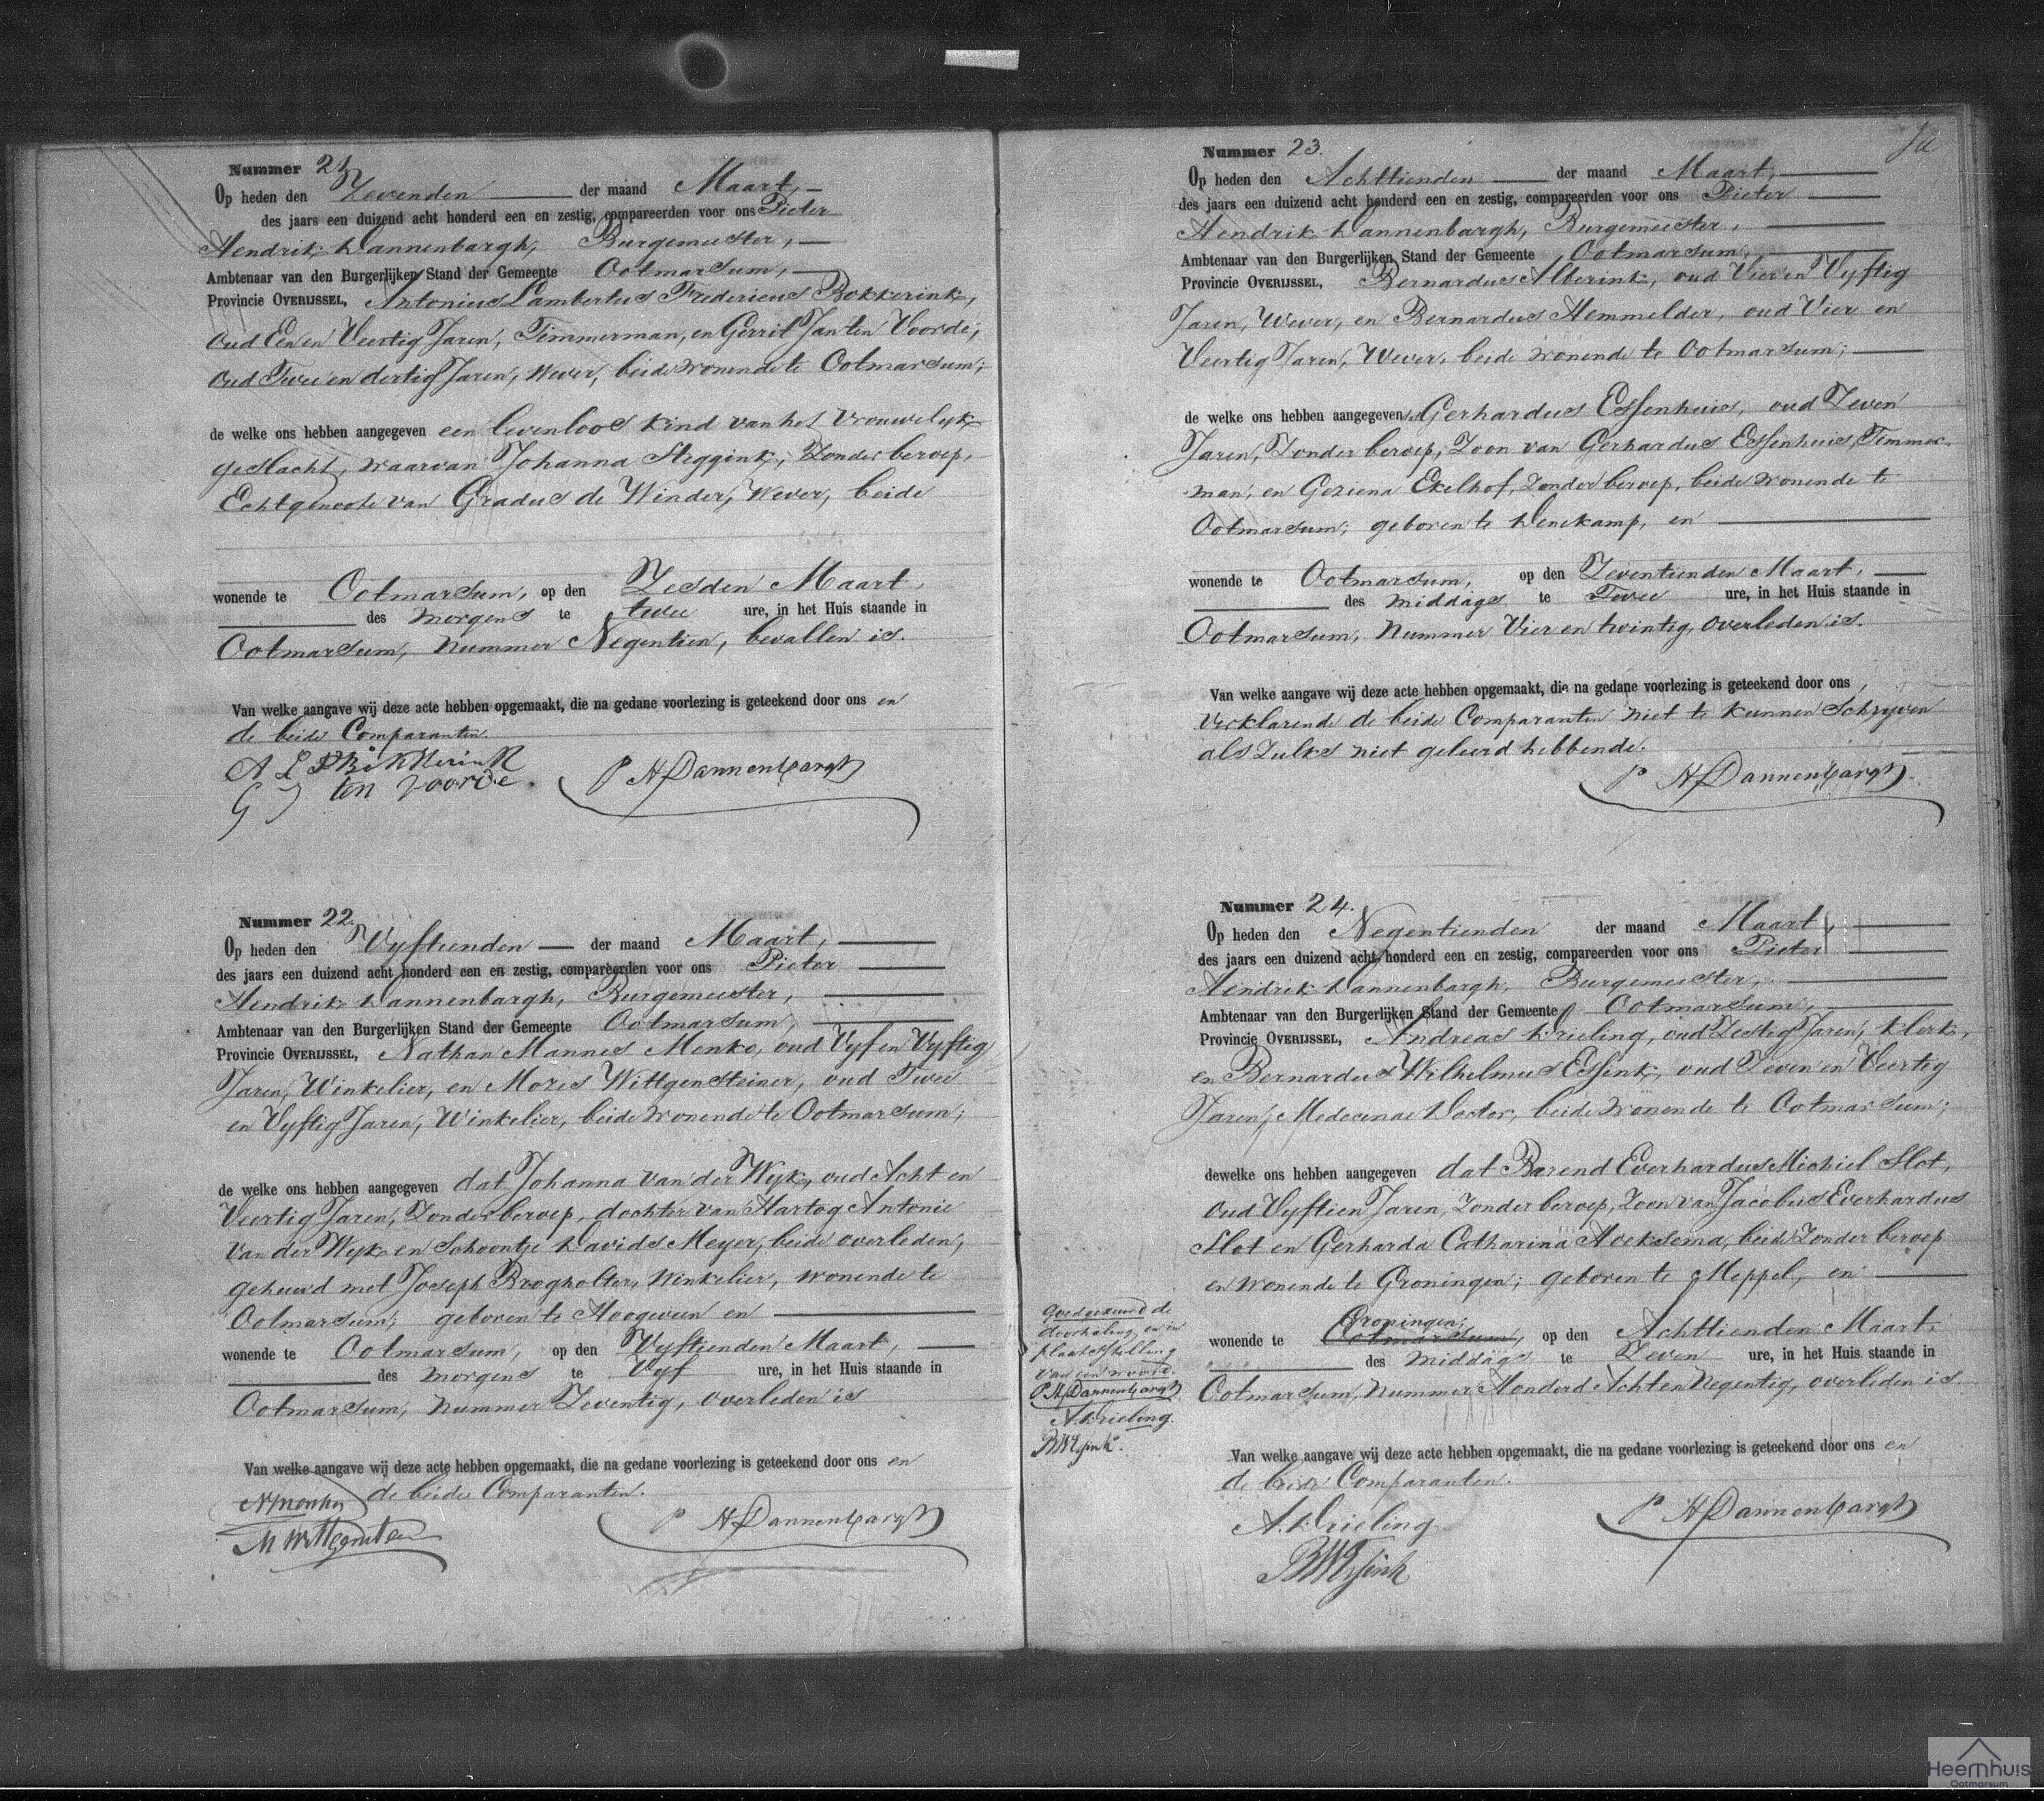 Nummer 21.
Op heden den Zevenden der maand Maart,
des jaars een duizend acht honderd een en zestig, compareerden voor ons Pieter
Hendrik Dannenbargh, Burgemeester,
Ambtenaar van den Burgerlijken Stand der Gemeente Ootmarsum,
Provincie OVERIJSSEL, Antonius Lambertus Fredericus Bokkerink,
oud Een en Veertig Jaren, Timmerman, en Gerrit Jan ten Voorde,
oud Twee en dertig Jaren, Wever, beide wonende te Ootmarsum;
de welke ons hebben aangegeven een levenloos kind van het Vrouwelyk
geslacht, waarvan Johanna Steggink, Zonder beroep,
Echtgenoote van Gradus de Winder, Wever, beide
wonende te Ootmarsum, op den Zesden Maart,
des morgens te twee ure, in het Huis staande in
Ootmarsum, nummer Negentien, bevallen is.
Van welke aangave wij deze acte hebben opgemaakt, die na gedane voorlezing is geteekend door ons en
de beide Comparanten.
G J ten Voorde. P H Dannenbargh
Nummer 22.
Op heden den Vyftienden der maand Maart,
des jaars een duizend acht honderd een en zestig, compareerden voor ons Pieter
Hendrik Dannenbargh, Burgemeester,
Ambtenaar van den Burgerlijken Stand der Gemeente Ootmarsum,
Provincie OVERIJSSEL, Nathan Mannes Menko, oud Vyf en Vyftig
Jaren, Winkelier, en Mozes Wittgensteiner, oud Twee
en Vyftig Jaren, Winkelier, beide wonende te Ootmarsum;
de welke ons hebben aangegeven dat Johanna van der Wyk, oud Acht en
Veertig Jaren, Zonder beroep, dochter van Hartog Antonie
van der Wyk en Schoontje Davids Meyer, beide overleden,
gehuwd met Joseph Brogholter, Winkelier, wonende te
Ootmarsum; geboren te Hoogeveen en
wonende te Ootmarsum, op den Vyftienden Maart,
des morgens te Vyf ure, in het Huis staande in
Ootmarsum, nummer Zeventig, overleden is
Van welke aangave wij deze acte hebben opgemaakt, die na gedane voorlezing is geteekend door ons en
de beide Comparanten.
NMenko
P H Dannenbargh
Nummer 23.
Op heden den Achttienden der maand Maart,
des jaars een duizend acht honderd een en zestig, compareerden voor ons Pieter
Hendrik Dannenbargh, Burgemeester,
Ambtenaar van den Burgerlijken Stand der Gemeente Ootmarsum,
Provincie OVERIJSSEL, Bernardus Alberink, oud Vier en Vyftig
Jaren, Wever, en Bernardus Hemmelder, oud Vier en
Veertig Jaren, Wever, beide wonende te Ootmarsum;
de welke ons hebben aangegeven Gerhardus Essenhuis, oud Zeven
Jaren, Zonder beroep, Zoon van Gerhardus Essenhuis, Timmer-
man, en Geziena Ekelhof, Zonder beroep, beide wonende te
Ootmarsum; geboren te Denekamp, en
wonende te Ootmarsum, op den Zeventienden Maart,
des middags te Twee ure, in het Huis staande in
Ootmarsum, nummer Vier en twintig, overleden is.
Van welke aangave wij deze acte hebben opgemaakt, die na gedane voorlezing is geteekend door ons,
verklarende de beide Comparanten niet te kunnen Schryven
als Zulks niet geleerd hebbende.
P H Dannenbargh
Nummer 24.
Op heden den Negentienden der maand Maart,
des jaars een duizend acht honderd een en zestig, compareerden voor ons Pieter
Hendrik Dannenbargh, Burgemeester,
Ambtenaar van den Burgerlijken Stand der Gemeente Ootmarsum,
Provincie OVERIJSSEL, Andreas Drieling, oud Zestig Jaren, Klerk,
en Bernardus Wilhelmus Essink, oud Zeven en Veertig
Jaren, Medecinae Doctor, beide wonende te Ootmarsum;
dewelke ons hebben aangegeven dat Barend Everhardus Michiel Slot,
oud Vyftien Jaren, Zonder beroep, Zoon van Jacobus Everhardus
Slot en Gerharda Catharina Hoeksema, beide Zonder beroep
en wonende te Groningen; geboren te Meppel, en
Groningen,
wonende te Ootmarsum, op den Achttienden Maart,
des middags te Zeven ure, in het Huis staande in
Ootmarsum, nummer Honderd Acht en Negentig, overleden is.
Van welke aangave wij deze acte hebben opgemaakt, die na gedane voorlezing is geteekend door ons en
de beide Comparanten.
A. Drieling P H Dannenbargh
BWEssink
Goedgekeurd de
doorhaling en in
plaatsstelling
van een woord.
P H Dannenbargh
A. Drieling.
BWEssink.
Heemhuis
Ootmarsum